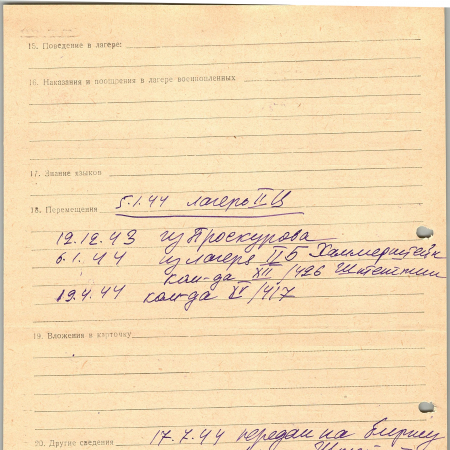 15. Поведение в лагере:
16. Наказания и поощрения в лагере военнопленных
17. Знание языков
18. Перемещения 5.1.44 лагерь II В
12.12.43 из Проскурова
6.1.44 из лагеря II Б Хаммерштейн
ком-да XII/426 Штеттин
19.4.44 ком-да XV/417
19. Вложения в карточку
20. Другие сведения 17.7.44 передан на биржу